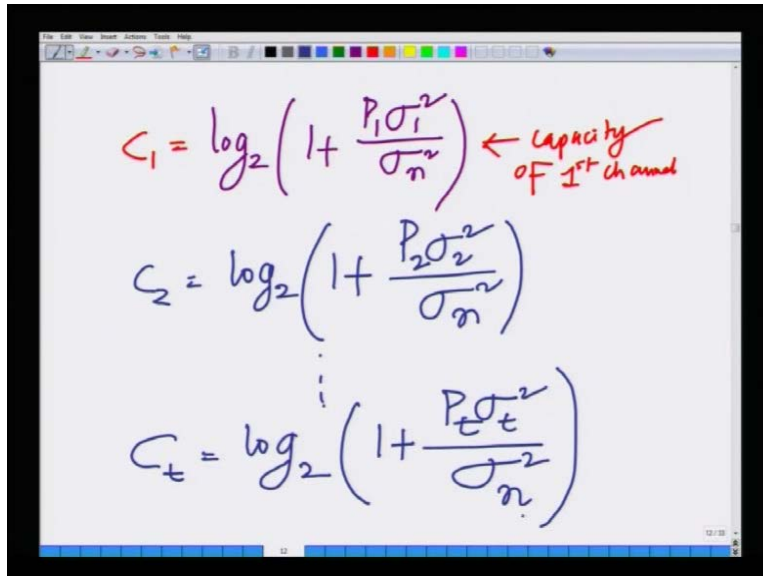 File Edit View Insert Actions Tools Help
C₁ = log₂(1+ P₁σ₁²/σₙ²) ← capacity
OF 1st channel
C₂ = log₂(1+ P₂σ₂²/σₙ²)
⋮
Cₜ = log₂(1+ Pₜσₜ²/σₙ²)
12